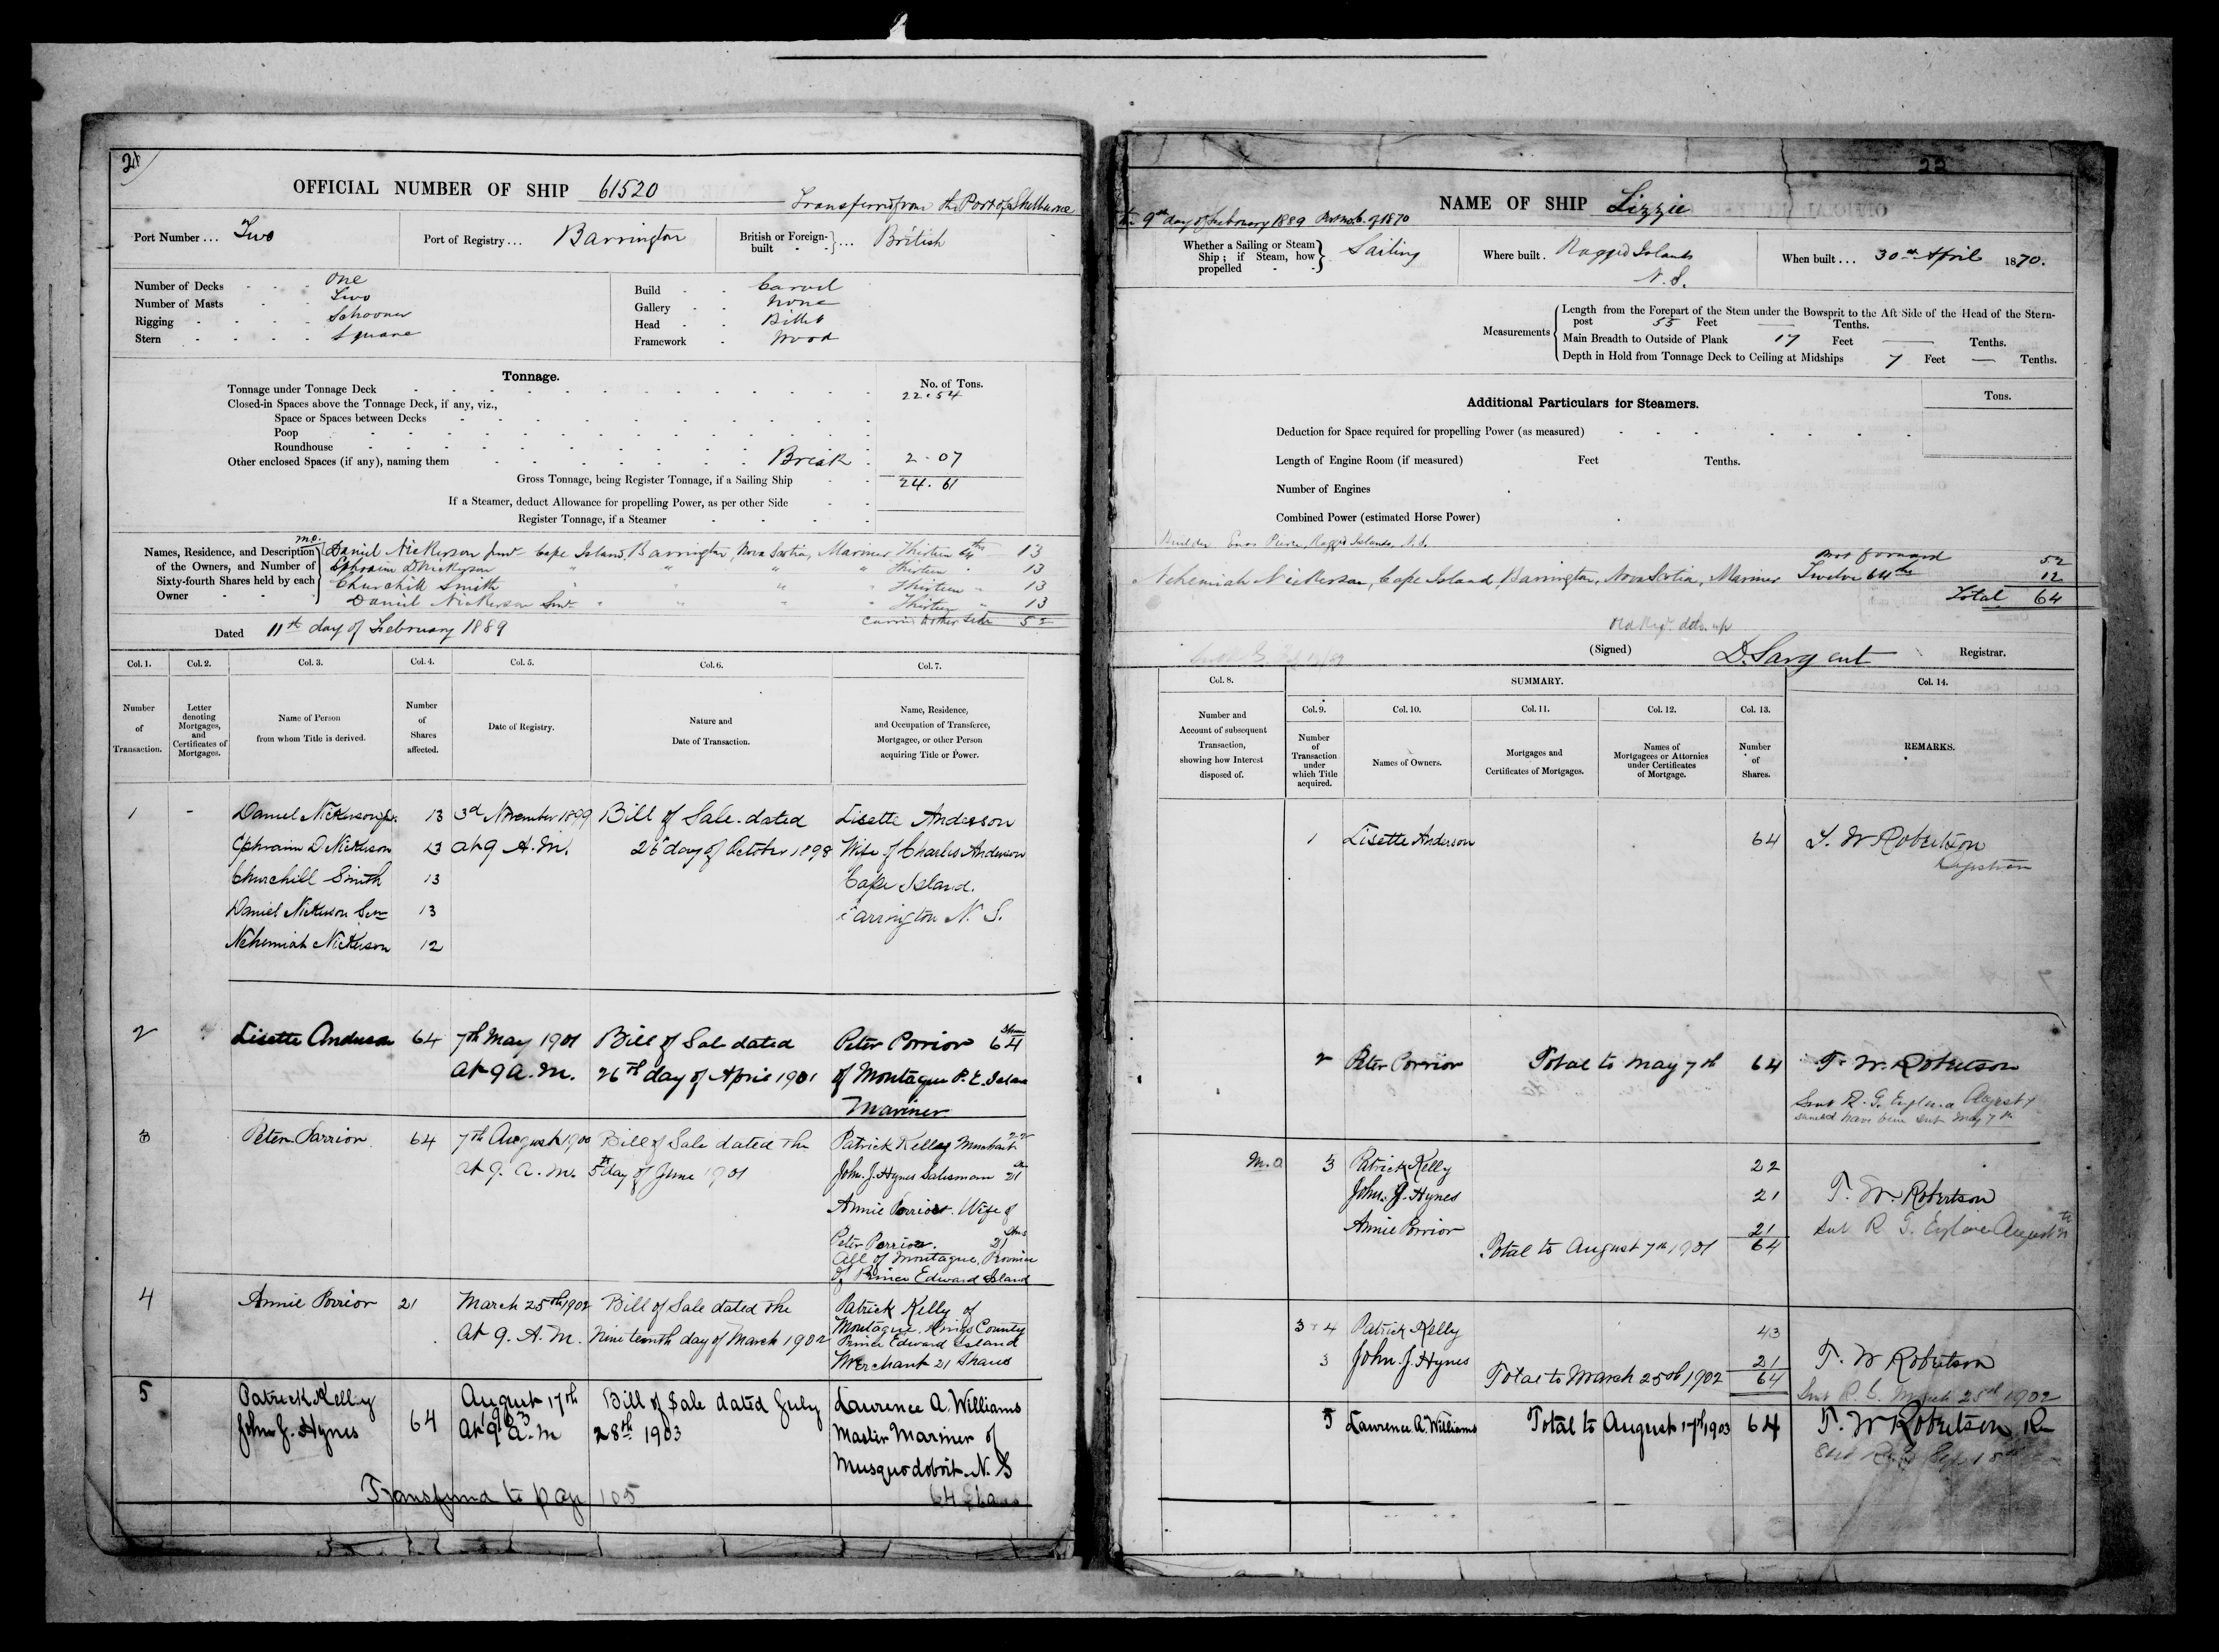 21
OFFICIAL NUMBER OF SHIP 61520
Transferred from the Port of Shelburne
Port Number ... Two
Port of Registry ... Barrington
British or Foreign-built ... British
Number of Decks One
Number of Masts Two
Rigging Schooner
Stern Square
Build Carvel
Gallery None
Head Billet
Framework Wood
Tonnage.
No. of Tons.
Tonnage under Tonnage Deck 22.54
Closed-in Spaces above the Tonnage Deck, if any, viz.,
Space or Spaces between Decks
Poop
Roundhouse
Other enclosed Spaces (if any), naming them Break 2.07
Gross Tonnage, being Register Tonnage, if a Sailing Ship 24.61
If a Steamer, deduct Allowance for propelling Power, as per other Side
Register Tonnage, if a Steamer
Names, Residence, and Description of the Owners, and Number of Sixty-fourth Shares held by each Owner
M.O.
Daniel Nickerson Junr Cape Island, Barrington, Nova Scotia, Mariner Thirteen 64ths 13
Ephraim D Nickerson " " " " Thirteen " 13
Churchill Smith " " " " Thirteen " 13
Daniel Nickerson Senr " " " " Thirteen " 13
Carried to other side 52
Dated 11th day of February 1889
Col. 1. Col. 2. Col. 3. Col. 4. Col. 5. Col. 6. Col. 7.
Number of Transaction.
Letter denoting Mortgages, and Certificates of Mortgages.
Name of Person from whom Title is derived.
Number of Shares affected.
Date of Registry.
Nature and Date of Transaction.
Name, Residence, and Occupation of Transferee, Mortgagee, or other Person acquiring Title or Power.
1 - Daniel Nickerson Jr. 13 3d November 1899 Bill of Sale dated Lisette Anderson
Ephraim D Nickerson 13 at 9 A.M. 26 day of October 1898 Wife of Charles Anderson
Churchill Smith 13 Cape Island.
Daniel Nickerson Senr 13 Barrington N. S.
Nehemiah Nickerson 12
2 Lisette Anderson 64 7th May 1901 Bill of Sale dated Peter Porrior 64 Shares
at 9 a.m. 26th day of April 1901 of Montague P. E. Island
Mariner
3 Peter Porrior 64 7th August 1901 Bill of Sale dated the Patrick Kelly Merchant 22
at 9. a.m. 5th day of June 1901 John. J. Hynes Salesman 21
Annie Porrior. Wife of
Peter Porrior. 21 Shs
All of Montague, Province
of Prince Edward Island
4 Annie Porrior 21 March 25th 1902 Bill of Sale dated the Patrick Kelly of
at 9. A.M. Nineteenth day of March 1902 Montague, Kings County
Prince Edward Island
Merchant 21 Shares
5 Patrick Kelly 64 August 17th Bill of Sale dated July Lawrence A. Williams
John J. Hynes 1903 At 9 a.m 28th 1903 Master Mariner of
Musquodoboit N. S
Transferred to page 105 64 Shares
22
NAME OF SHIP Lizzie
the 9th day of February 1889 Port No 6. of 1870
Whether a Sailing or Steam Ship; if Steam, how propelled Sailing
Where built. Ragged Islands N. S.
When built ... 30th April 1870.
Measurements
Length from the Forepart of the Stem under the Bowsprit to the Aft Side of the Head of the Stern-
post 55 Feet — Tenths.
Main Breadth to Outside of Plank 17 Feet — Tenths.
Depth in Hold from Tonnage Deck to Ceiling at Midships 7 Feet — Tenths.
Additional Particulars for Steamers.
Tons.
Deduction for Space required for propelling Power (as measured)
Length of Engine Room (if measured) Feet Tenths.
Number of Engines
Combined Power (estimated Horse Power)
Builder Enos Pierce, Ragged Islands, N.S.
Brot forward 52
Nehemiah Nickerson, Cape Island, Barrington, Nova Scotia, Mariner Twelve 64ths 12
Total 64
(Signed) D. Sargent Registrar.
Col. 8. SUMMARY. Col. 14.
Col. 9. Col. 10. Col. 11. Col. 12. Col. 13.
Number and Account of subsequent Transaction, showing how Interest disposed of.
Number of Transaction under which Title acquired.
Names of Owners.
Mortgages and Certificates of Mortgages.
Names of Mortgagees or Attornies under Certificates of Mortgage.
Number of Shares.
REMARKS.
1 Lisette Anderson 64 T. W Robertson
Registrar
2 Peter Porrior Total to May 7th 64 T. W. Robertson
Sent R. G. England August 7
should have been sent May 7th
M.O. 3 Patrick Kelly 22
John. J. Hynes 21 T. W. Robertson
Annie Porrior 21 Sent R. G. England August
Total to August 7th 1901 64
3 & 4 Patrick Kelly 43
3 John. J. Hynes 21 T. W Robertson
Total to March 25th 1902 64
Sent R. G. March 25th 1902
5 Lawrence A. Williams Total to August 17th 1903 64 T. W Robertson